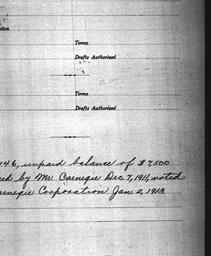 Terms
Drafts Authorized
Terms
Drafts Authorized
146, unpaid balance of $7,500
ed by Mr. Carnegie Dec. 7, 1911, voted
arnegie Corporation Jan. 2, 1913.